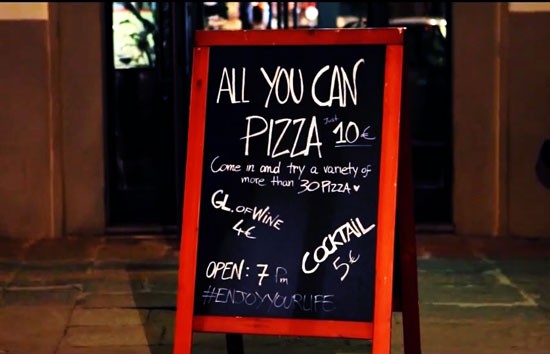 ALL YOU CAN
PIZZA Just 10€
Come in and try a variety of
more than 30 PIZZA ♥
GL. OF WINE
4€
COCKTAIL
5€
OPEN: 7 Pm
#ENJOYYOURLIFE